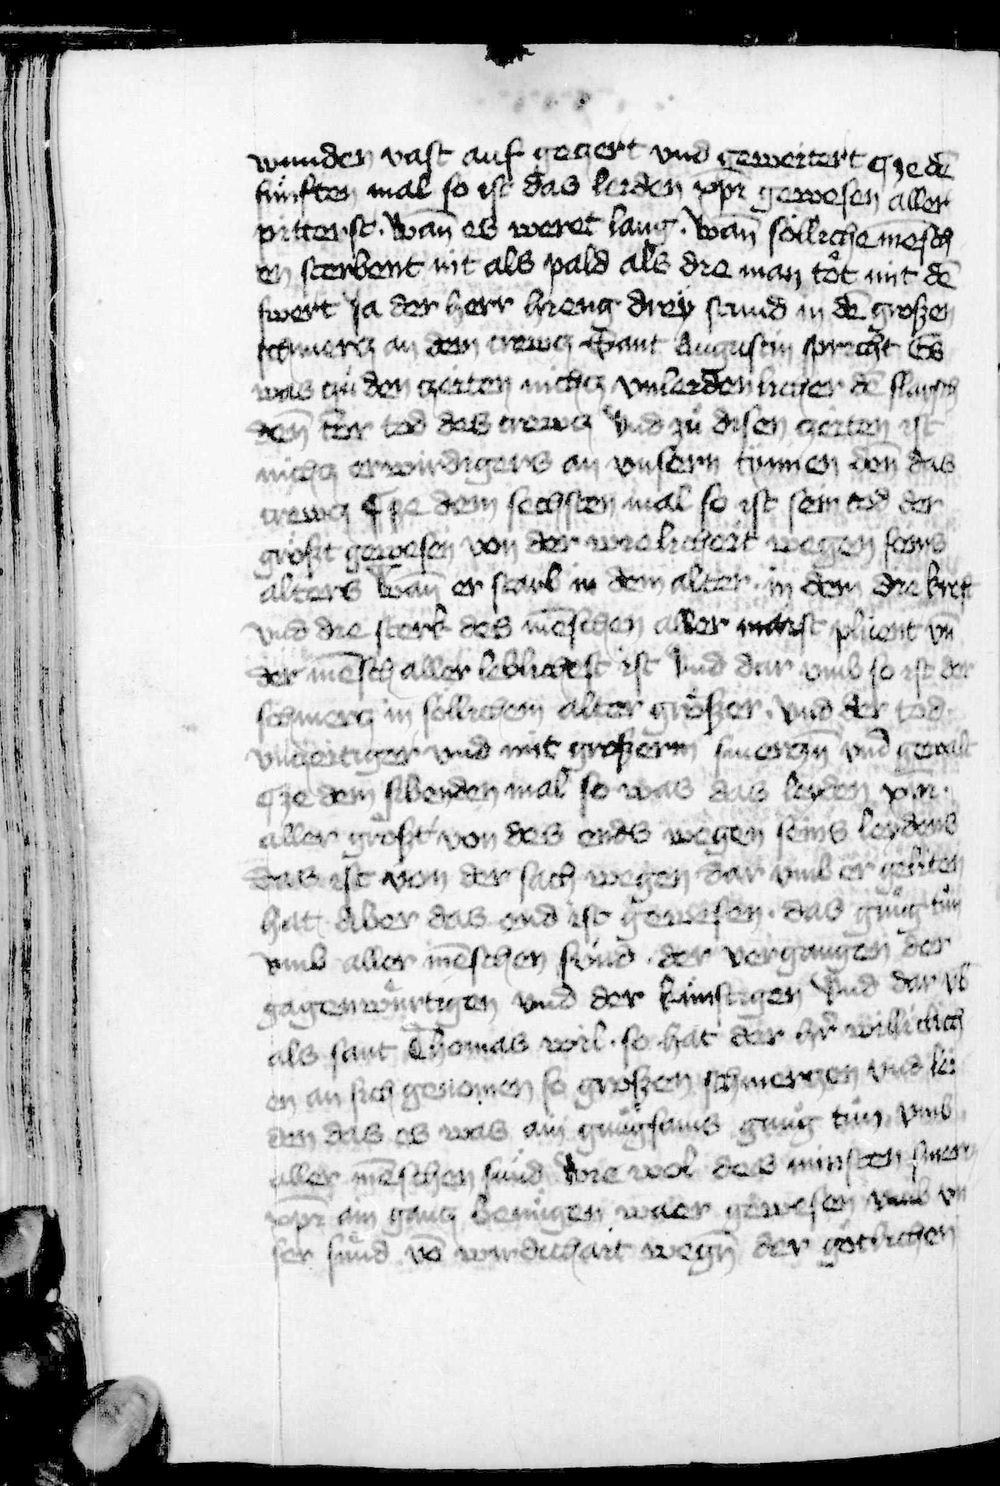 wunden vast auf gegert vnd geweitert ¶ Ze dē
fünften mal so ist das leiden xp̄i gewesen aller
pitterst. Wan̄ es weret lang. Wan̄ sölliche mēsch
en sterbent nit als pald als die man töt mit dē
swert Ja der herr hieng drey stund in dē großen
schmercz an dem crewcz Sant Augustin spricht Es
was zu den zeiten nichcz vnleidenlicher dē flaisch
den̄ der tod des crewcz Vnd zů disen zeiten ist
nichcz erwirdigers an vnsern tirnnen den̄ das
crewcz ¶ Ze dem sechsten mal so ist sein tod der
gröst gewesen von der wirlichait wegen seins
alters Wan̄ er starb in dem alter. in dem die kreft
vnd die sterk des mēschen aller maist plüent vn̄
der mēsch aller leblichest ist Vnd dar vmb so ist der
schmercz in söllichem alter größer. Vnd der tod
vnzeitiger vnd mit großerm smerczn̄ vnd gewalt
¶ Ze dem sibenden mal so was das leyden xp̄i.
aller gröst von des ends wegen seins leydens
das ist von der sach wegen dar vmb er geliten
hat Aber das end ist gewesen. das gnůg tůn
vmb aller mēschen sünd. der vergangen der
gagenwürtigen vnd der künftigen Vnd dar vb
als sant Thomas wil. so hat der hr̄ williclich
en an sich genomen so großen schmerzen vnd lei
den das es was ain gnůgsams gnůg tůn vmb
aller mēschen sünd Wie wol des minsten smer
xp̄i ain ganz benügen waer gewesen vmb vn
ser sünd vō wirdichait wegn̄ der götlichen